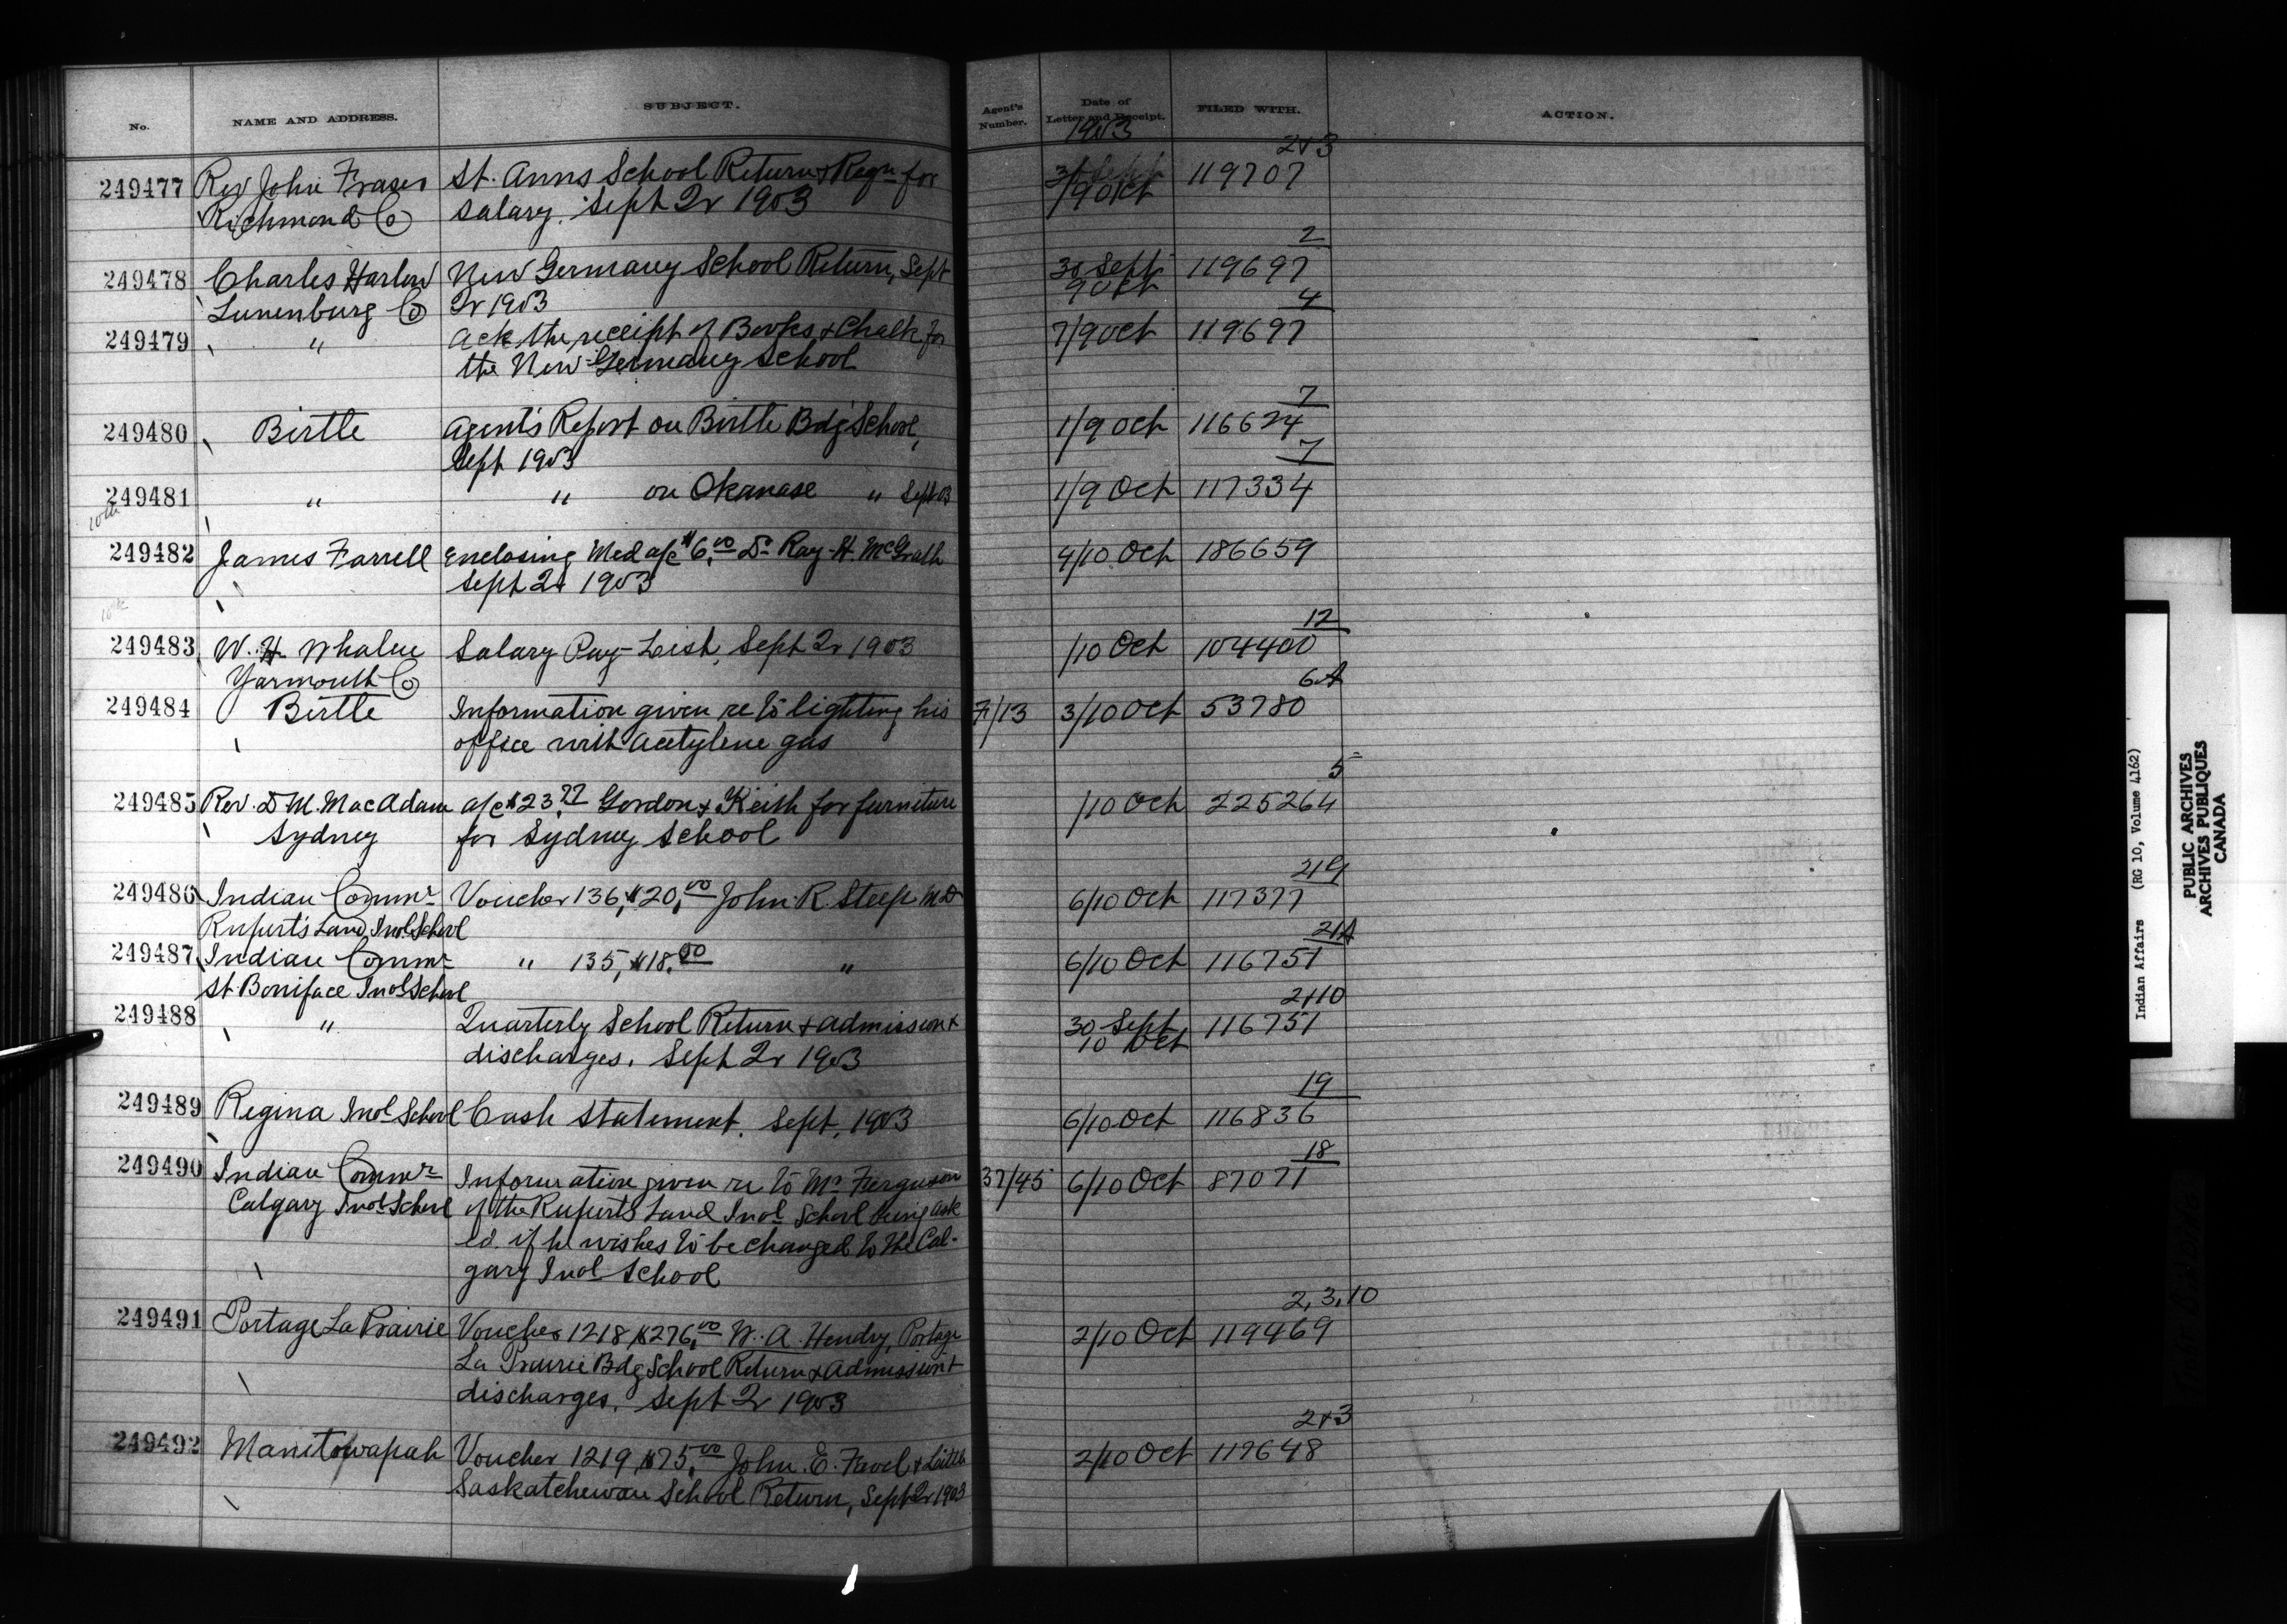 No. NAME AND ADDRESS. SUBJECT. Agent's Number. Date of Letter and Receipt. FILED WITH. ACTION.
1903
2+3
249477 Rev John Fraser St. Anns School Return & Reqn for 119707
Richmond Co Salary. Sept Qr 1903 /9 Oct
2
249478 Charles Harlow New Germany School Return, Sept 30 Sept 119697
Lunenburg Co Qr 1903 9 Oct
4
249479 " Ack the receipt of Books & Chalk for 7/9 Oct 119697
the New Germany School
7
249480 Birtle Agent's Report on Birtle Bdg School, 1/9 Oct 116624
Sept 1903
7
249481 " " on Okanase " Sept 03 1/9 Oct 117334
10th
249482 James Farrell Enclosing Med a/c $6.00 Dr Ray H. McGrath 4/10 Oct 186659
Sept Qr 1903
12
249483 W. H. Whalen Salary Pay-List, Sept Qr 1903 /10 Oct 104400
Yarmouth Co
6A
249484 Birtle Information given re to lighting his 7/13 3/10 Oct 53780
office with Acetylene gas
5
249485 Rev. D M. MacAdam a/c $23.77 Gordon & Keith for furniture /10 Oct 225264
Sydney for Sydney School
249486 Indian Commr Voucher 136, $20.00 John R. Steep M D 6/10 Oct 117377
Rupert's Land Indl School
21A
249487 Indian Commr " 135, $18.50 " 6/10 Oct 116751
St. Boniface Indl School
2+10
249488 " Quarterly School Return & admission & 30 Sept 116751
discharges. Sept Qr 1903 10 Oct
19
249489 Regina Indl School Cash Statement. Sept. 1903 6/10 Oct 116836
18
249490 Indian Commr Information given re to Mr Ferguson 37/45 6/10 Oct 87071
Calgary Indl School of the Ruperts Land Indl School being ask
ed. if he wishes to be changed to the Cal-
gary Indl School
2, 3, 10
249491 Portage La Prairie Voucher 1218 $276.00 W. A. Hendry, Portage 2/10 Oct 119469
La Prairie Bdg School Return & Admission &
discharges. Sept Qr 1903
2+3
249492 Manitowapah Voucher 1219 $75.00 John. E. Favel & Little 2/10 Oct 117648
Saskatchewan School Return, Sept Qr 1903
Indian Affairs (RG 10, Volume 4162)
PUBLIC ARCHIVES
ARCHIVES PUBLIQUES
CANADA